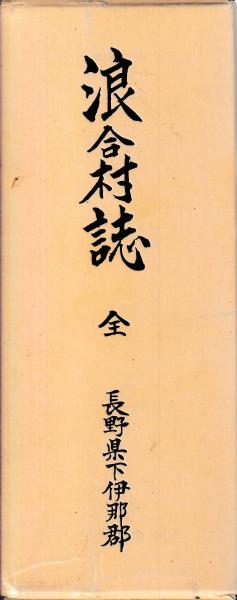 浪合村誌
全
長野県下伊那郡